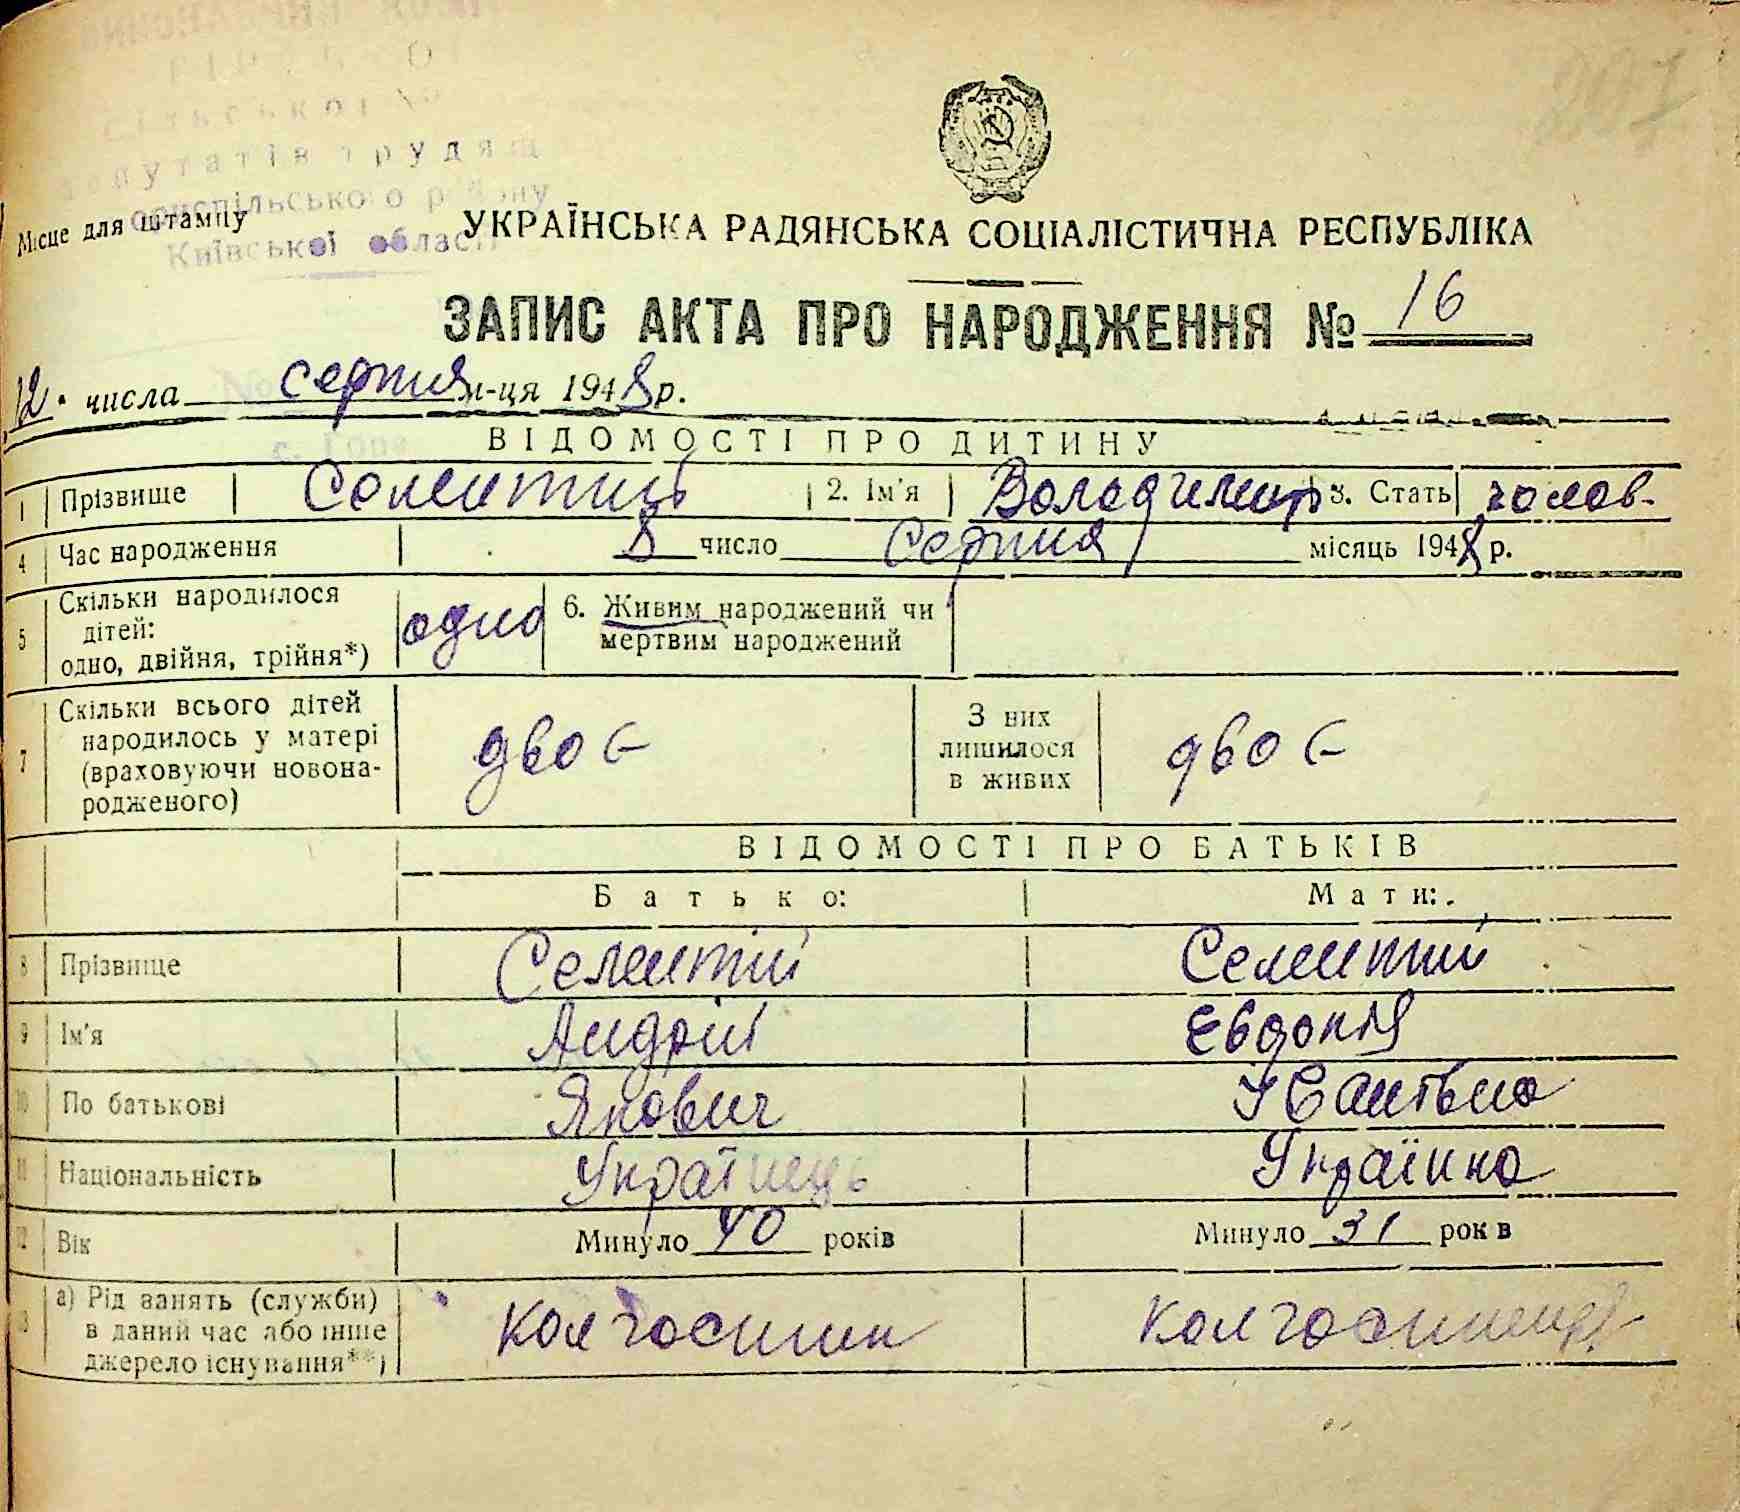 сільської
депутатів трудящ
Бориспільського району
Київської області
Місце для штампу
УКРАЇНСЬКА РАДЯНСЬКА СОЦІАЛІСТИЧНА РЕСПУБЛІКА
ЗАПИС АКТА ПРО НАРОДЖЕННЯ № 16
12. числа серпня м-ця 1948 р.
ВІДОМОСТІ ПРО ДИТИНУ
1 Прізвище 2. Ім'я Володимир 3. Стать чолов-
4 Час народження 8 число Серпня місяць 1948 р.
5 Скільки народилося дітей: одно, двійня, трійня*) одно 6. Живим народжений чи мертвим народжений
7 Скільки всього дітей народилось у матері (враховуючи новонародженого) двоє З них лишилося в живих двоє
ВІДОМОСТІ ПРО БАТЬКІВ
Батько: Мати:
8 Прізвище Селентій Селентий
9 Ім'я Андрій Євдокія
10 По батькові Якович
11 Національність Українець Українка
12 Вік Минуло 40 років Минуло 31 років
13 а) Рід занять (служби) в даний час або інше джерело існування**) Колгоспник Колгоспниця